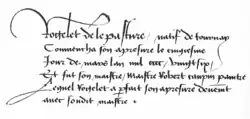 Rogelet de le pasture, natif de tournay
Commencha son apresure le cinquiesme
Jour de mars l'an mil cccc vingt six
Et fut son maistre, maistre Robert campin paintre
Lequel Rogelet a parfait son apresure deuement
avec sondit maistre